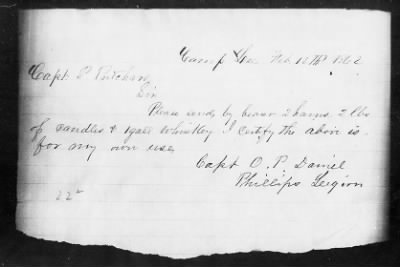 Camp Lee Feb 16th 1862
Capt P Pritchard
Sir
Please send by bearer 2 hams. 2 lbs
of candles & 1 gall Whiskey I certify the above is
for my own use
Capt O. P. Daniel
Phillips Legion